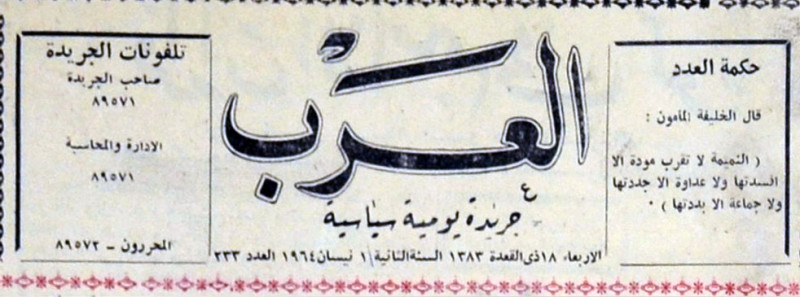 حكمة العدد
قال الخليفة المأمون :
( النميمة لا تقرب مودة الا
افسدتها ولا عداوة الا جددتها
ولا جماعة الا بددتها ) ٠
العرب
جريدة يومية سياسية
الاربعاء ١٨ ذي القعدة ١٣٨٣ السنة الثانية ١ نيسان ١٩٦٤ العدد ٢٣٣
تلفونات الجريدة
صاحب الجريدة
٨٩٥٧١
الادارة والمحاسبة
٨٩٥٧١
المحررون - ٨٩٥٧٢